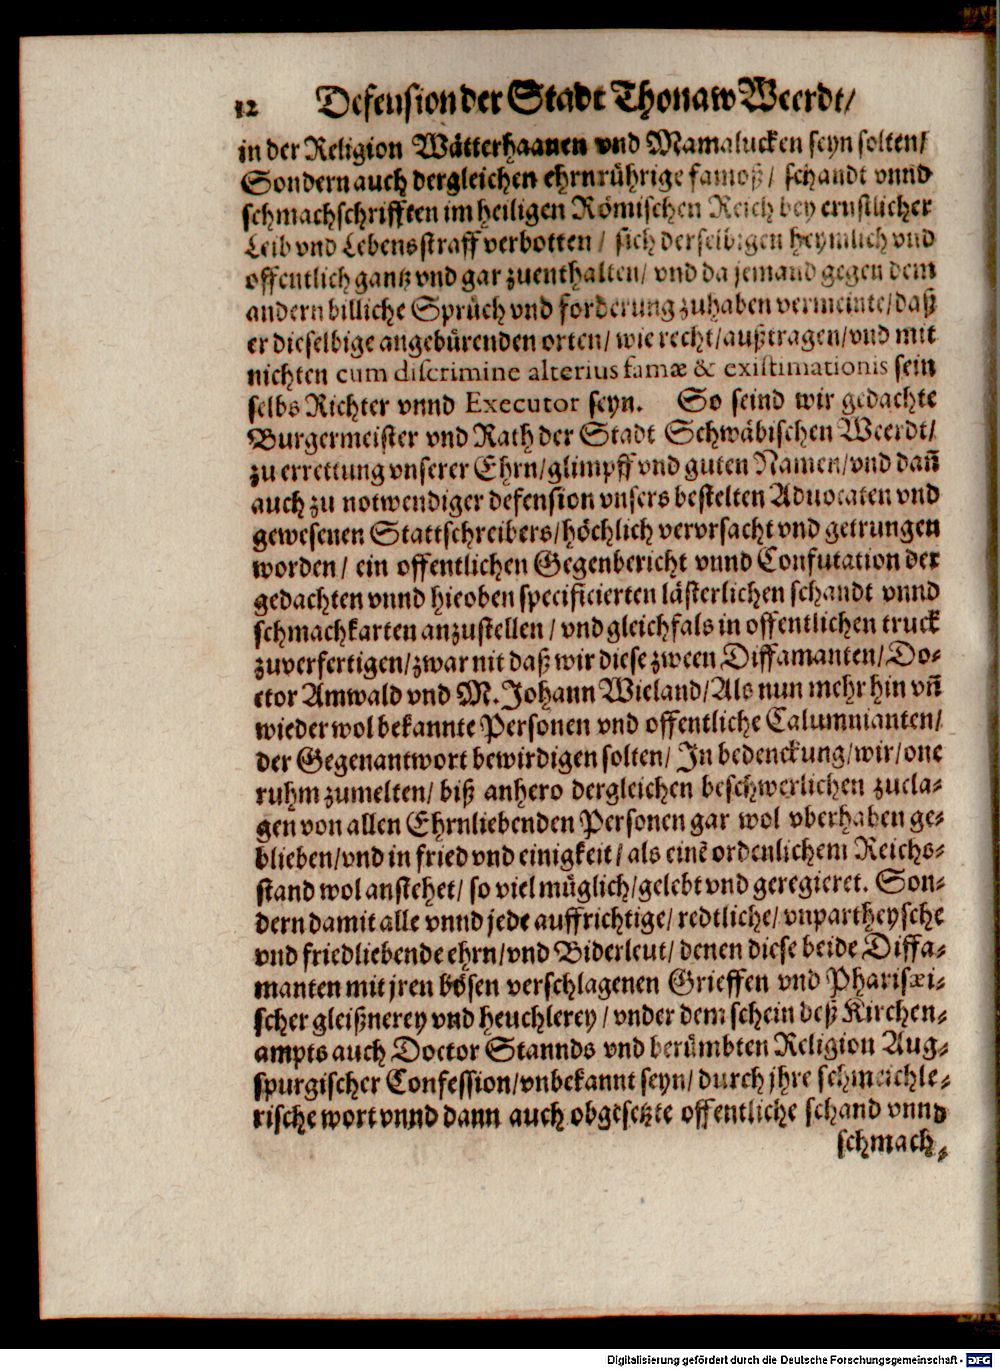 12 Defension der Stadt Thonaw Weerdt/
in der Religion Wåtterhaanen vnd Mamalucken seyn solten/
Sondern auch dergleichen ehrnrührige famoß/ schandt vnnd
schmachschrifften im heiligen Rômischen Reich bey ernstlicher
Leib vnd Lebensstraff verbotten/ sich derselbigen heymlich vnd
offentlich gantz vnd gar zuenthalten/ vnd da jemand gegen dem
andern billiche Sprůch vnd forderung zuhaben vermeinte/ daß
er dieselbige angebůrenden orten/ wie recht/ außtragen/ vnd mit
nichten cum discrimine alterius famæ & existimationis sein
selbs Richter vnnd Executor seyn. So seind wir gedachte
Burgermeister vnd Rath der Stadt Schwåbischen Weerdt/
zu errettung vnserer Ehrn/ glimpff vnd guten Namen/ vnd dañ
auch zu notwendiger defension vnsers bestelten Aduocaten vnd
gewesenen Stattschreibers/ hôchlich vervrsacht vnd getrungen
worden/ ein offentlichen Gegenbericht vnnd Confutation der
gedachten vnnd hieoben specificierten låsterlichen schandt vnnd
schmachkarten anzustellen/ vnd gleichfals in offentlichen truck
zuverfertigen/ zwar nit daß wir diese zween Diffamanten/ Do-
ctor Amwald vnd M. Johann Wieland/ Als nun mehr hin vñ
wieder wol bekannte Personen vnd offentliche Calumnianten/
der Gegenantwort bewirdigen solten/ In bedenckung/ wir/ one
ruhm zumelten/ biß anhero dergleichen beschwerlichen zucla-
gen von allen Ehrnliebenden Personen gar wol vberhaben ge-
blieben/ vnd in fried vnd einigkeit/ als einē ordenlichem Reichs-
stand wol anstehet/ so viel můglich/ gelebt vnd geregieret. Son-
dern damit alle vnnd jede auffrichtige/ redtliche/ vnpartheysche
vnd friedliebende ehrn/ vnd Biderleut/ denen diese beide Diffa-
manten mit jren bôsen verschlagenen Grieffen vnd Pharisæi-
scher gleißnerey vnd heuchlerey/ vnder dem schein deß Kirchen-
ampts auch Doctor Stannds vnd berůmbten Religion Aug-
spurgischer Confession/ vnbekannt seyn/ durch jhre schmeichle-
rische wort vnnd dann auch obgesetzte offentliche schand vnnd
schmach-
Digitalisierung gefördert durch die Deutsche Forschungsgemeinschaft - DFG